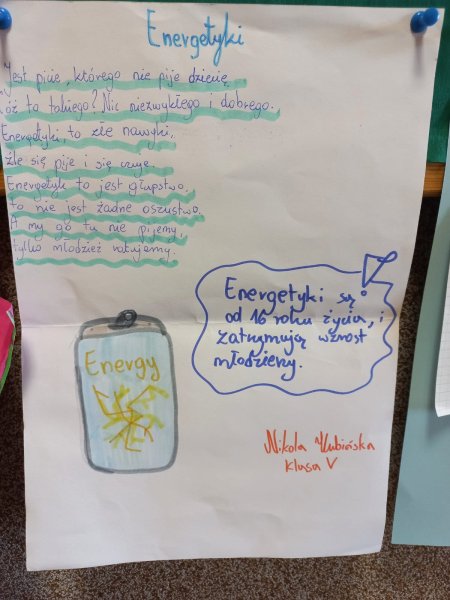 Energetyki
Jest picie, którego nie pije dziecię.
Cóż to takiego? Nic niezwykłego i dobrego.
Energetyki, to złe nawyki,
źle się pije i się czuje.
Energetyk to jest głupstwo,
to nie jest żadne oszustwo.
A my go tu nie pijemy,
tylko młodzież ratujemy.
Energetyki są
od 16 roku życia, i
zatrzymują wzrost
młodzieży.
Energy
Nikola
klasa V